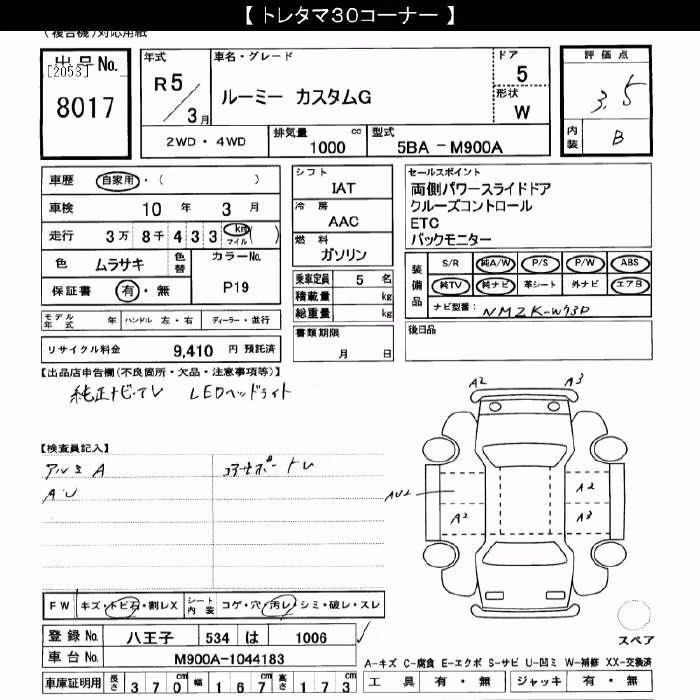 【 トレタマ30コーナー 】
(複合機)対応用紙
出品No.
[2053]
8017
年式
R5／3月
車名・グレード
ルーミー カスタムG
ドア
5
形状
W
評価点
3.5
内装
B
2WD・4WD
排気量
1000 cc
型式
5BA－M900A
車歴 自家用・( )
車検 10年 3月
走行 3万 8千 4 3 3 km マイル ( )
色 ムラサキ 色替
カラーNo.
P19
保証書 有・無
シフト
IAT
冷房
AAC
燃料
ガソリン
セールスポイント
両側パワースライドドア
クルーズコントロール
ETC
バックモニター
乗車定員 5 名
積載量 kg
総重量 kg
装備品
S/R 純A/W P/S P/W ABS
純TV 純ナビ 革シート 外ナビ エアB
ナビ型番: NMZK-W73D
モデル年式 年 ハンドル 左・右 ディーラー・並行
リサイクル料金 9,410 円 預託済
書類期限
月 日
後日品
【出品店申告欄(不良箇所・欠品・注意事項等)】
純正ナビ・TV LEDヘッドライト
【検査員記入】
アルミ A
AU
コアサポートレ
A2
A3
AU2
A2
A2
A3
FW キズ・トビ石・割レX
シート内装 コゲ・穴・汚レ・シミ・破レ・スレ
登録No. 八王子 534 は 1006
車台No. M900A-1044183
車庫証明用 長さ 370cm 幅 167cm 高さ 173cm
スペア
A-キズ C-腐食 E-エクボ S-サビ U-凹ミ W-補修 XX-交換済
工具 有・無 ジャッキ 有・無